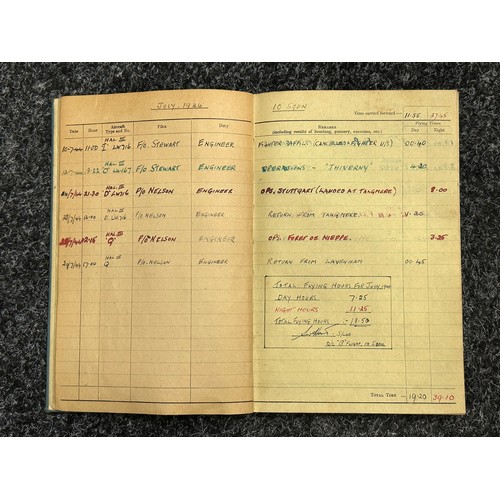 JULY. 1944
10 SQDN
Time carried forward:— 11.55 27.45
Date Hour Aircraft Type and No. Pilot Duty
Remarks (including results of bombing, gunnery, exercises, etc.)
Flying Times
Day Night
11:00 HAL III LW716 F/O. STEWART ENGINEER FIGHTER AFFIL. (CANCELLED - FIGHTER U/S) 00.40
HAL III F/O. STEWART ENGINEER OPERATIONS - "THIVERNY" 4.20
24/7/44 21.30 HAL III LW716 F/O NELSON ENGINEER OPS. STUTTGART (LANDED AT TANGMERE) 8.00
LW716 F/O NELSON ENGINEER RETURN FROM TANGMERE
HAL III 'Q' F/O NELSON ENGINEER OPS. FORET DE NIEPPE. 3.25
HAL III 'Q' F/O. NELSON ENGINEER RETURN FROM LAVENHAM 00.45
TOTAL FLYING HOURS FOR JULY
DAY HOURS 7.25
NIGHT HOURS 11.25
TOTAL FLYING HOURS :- 18.50
S/LDR
O/C "B" FLIGHT, 10 SQDN.
TOTAL TIME 19.20 39.10